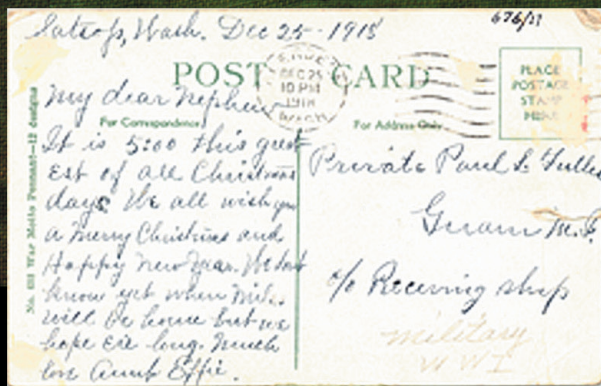 Satsop, Wash. Dec 25 - 1918
676/31
POST CARD
DEC 25
10 PM
1918
PLACE
POSTAGE
STAMP
HERE
For Correspondence
For Address Only
No. 631 War Motto Pennant—12 designs
My dear Nephew
It is 5:00 this great
est of all Christmas
days. We all wish you
a Merry Christmas and
Happy New Year. We dont
know yet when
will be home but we
hope ere long. Much
love Aunt Effie.
Private Paul L.
Guam M.I.
c/o Receiving ship
military
WWI